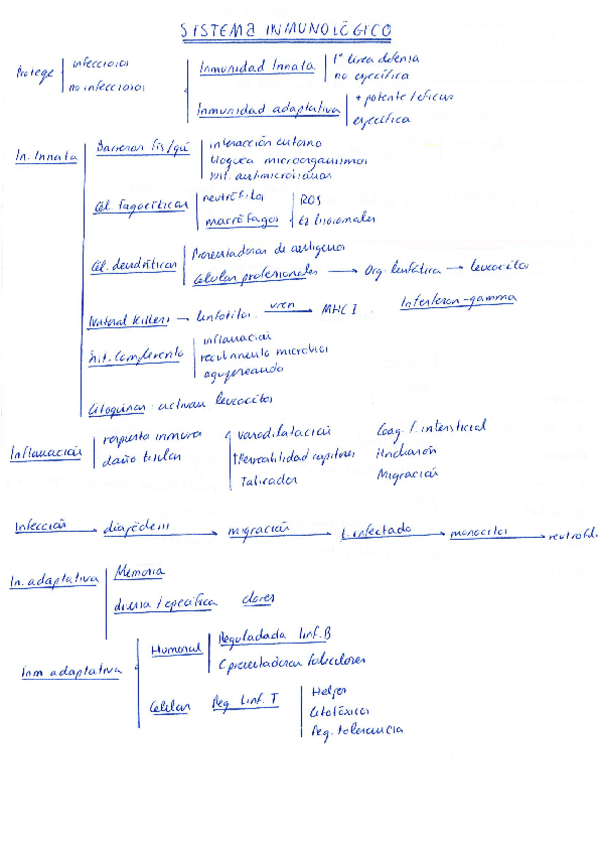 SISTEMA INMUNOLÓGICO
Protege infecciosos
no infecciosos
Inmunidad Innata 1ª línea defensa
no específica
Inmunidad adaptativa + potente/eficaz
específica
In. Innata
Barreras fís/quí interacción entorno
bloquea microorganismos
sist. antimicrobianos
Cél. fagocíticas neutrófilos ROS
macrófagos Ez lisosomales
Cél. dendríticas Presentadoras de antígeno
Células profesionales → Org. linfático → leucocitos
Natural Killers → linfocitos unen → MHC I Interferon-gamma
Sist. Complemento inflamación
reclutamiento microbios
agujereando
Citoquinas: activan leucocitos
Inflamación respuesta inmune
daño tisular
vasodilatación Coag. l. intersticial
↑ Permeabilidad capilares Hinchazón
Migración
Infección → diapédesis → migración → t. infectado → monocitos → neutrófil.
In. adaptativa Memoria
diversa/específica clones
Inm adaptativa
Humoral Reguladada linf. B
C presentadoras foliculares
Celular Reg linf. T Helper
Citotóxicos
Reg. tolerancia